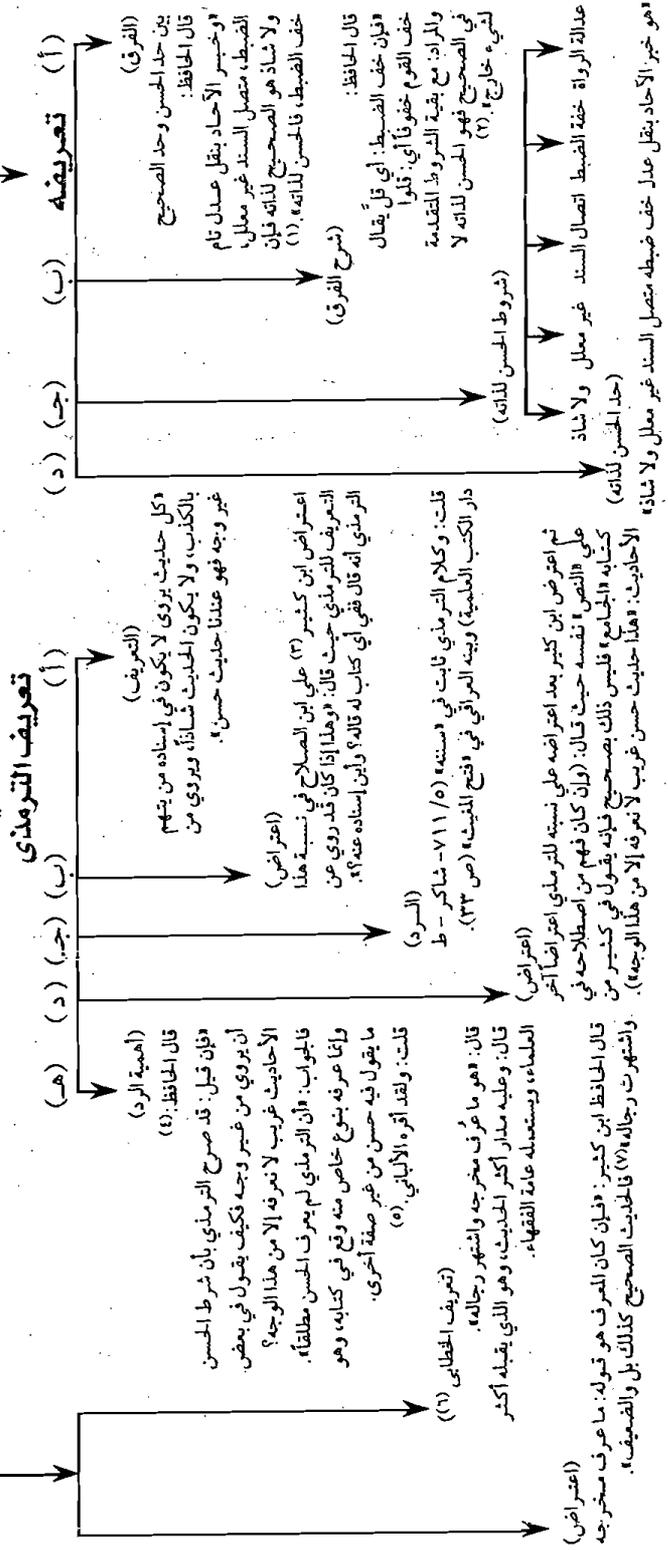 تعريفه
(أ)
(ب)
(جـ)
(د)
(الفرق)
بين حد الحسن وحد الصحيح
قال الحافظ:
«وخبر الآحاد بنقل عدل تام
الضبط، متصل السند غير معلل،
ولا شاذ هو الصحيح لذاته فإن
خف الضبط، فالحسن لذاته».(١)
(شرح الفرق)
قال الحافظ:
«فإن خف الضبط: أي قلَّ يقال
خف القوم خفوفاً أي: قلوا
والمراد: مع بقية الشروط المتقدمة
في الصحيح فهو الحسن لذاته لا
لشيء خارج».(٢)
(شروط الحسن لذاته)
عدالة الرواة
خفة الضبط
اتصال السند
غير معلل
ولا شاذ
(حد الحسن لذاته)
«هو خبر الآحاد بنقل عدل خف ضبطه متصل السند غير معلل ولا شاذ»
تعريف الترمذي
(أ)
(ب)
(جـ)
(د)
(هـ)
(التعريف)
«كل حديث يروى لا يكون في إسناده من يتهم
بالكذب، ولا يكون الحديث شاذاً، ويروى من
غير وجه فهو عندنا حديث حسن».
(اعتراض)
اعتراض ابن كثير (٣) على ابن الصلاح في نسبة هذا
التعريف للترمذي حيث قال: «وهذا إذا كان قد روي عن
الترمذي أنه قال ففي أي كتاب له قاله؟ وأين إسناده عنه؟».
(الرد)
قلت: وكلام الترمذي ثابت في «سننه» (٥/ ٧١١- شاكر - ط
دار الكتب العلمية) وبينه العراقي في «فتح المغيث» (ص ٣٣).
(اعتراض)
ثم اعترض ابن كثير بعد اعتراضه على نسبته للترمذي اعتراضاً آخر
على «النص» نفسه حيث قال: (وإن كان فهم من اصطلاحه في
كتابه «الجامع» فليس ذلك بصحيح فإنه يقول في كثير من
الأحاديث: «هذا حديث حسن غريب لا نعرفه إلا من هذا الوجه»).
(أهمية الرد)
قال الحافظ:(٤)
«فإن قيل: قد صرح الترمذي بأن شرط الحسن
أن يروي من غير وجه فكيف يقول في بعض
الأحاديث غريب لا نعرفه إلا من هذا الوجه؟
فالجواب: «أن الترمذي لم يعرف الحسن مطلقاً».
وإنما عرفه بنوع خاص منه وقع في كتابه، وهو
ما يقول فيه حسن من غير صفة أخرى.
قلت: ولقد أقره الألباني.(٥)
(تعريف الخطابي (٦))
قال: «هو ما عُرف مخرجه واشتهر رجاله».
قال: وعليه مدار أكثر الحديث، وهو الذي يقبله أكثر
العلماء، ويستعمله عامة الفقهاء.
(اعتراض)
قال الحافظ ابن كثير: «فإن كان المعرف هو قوله: ما عرف مخرجه
واشتهرت رجاله»(٧) فالحديث الصحيح كذلك بل والضعيف».